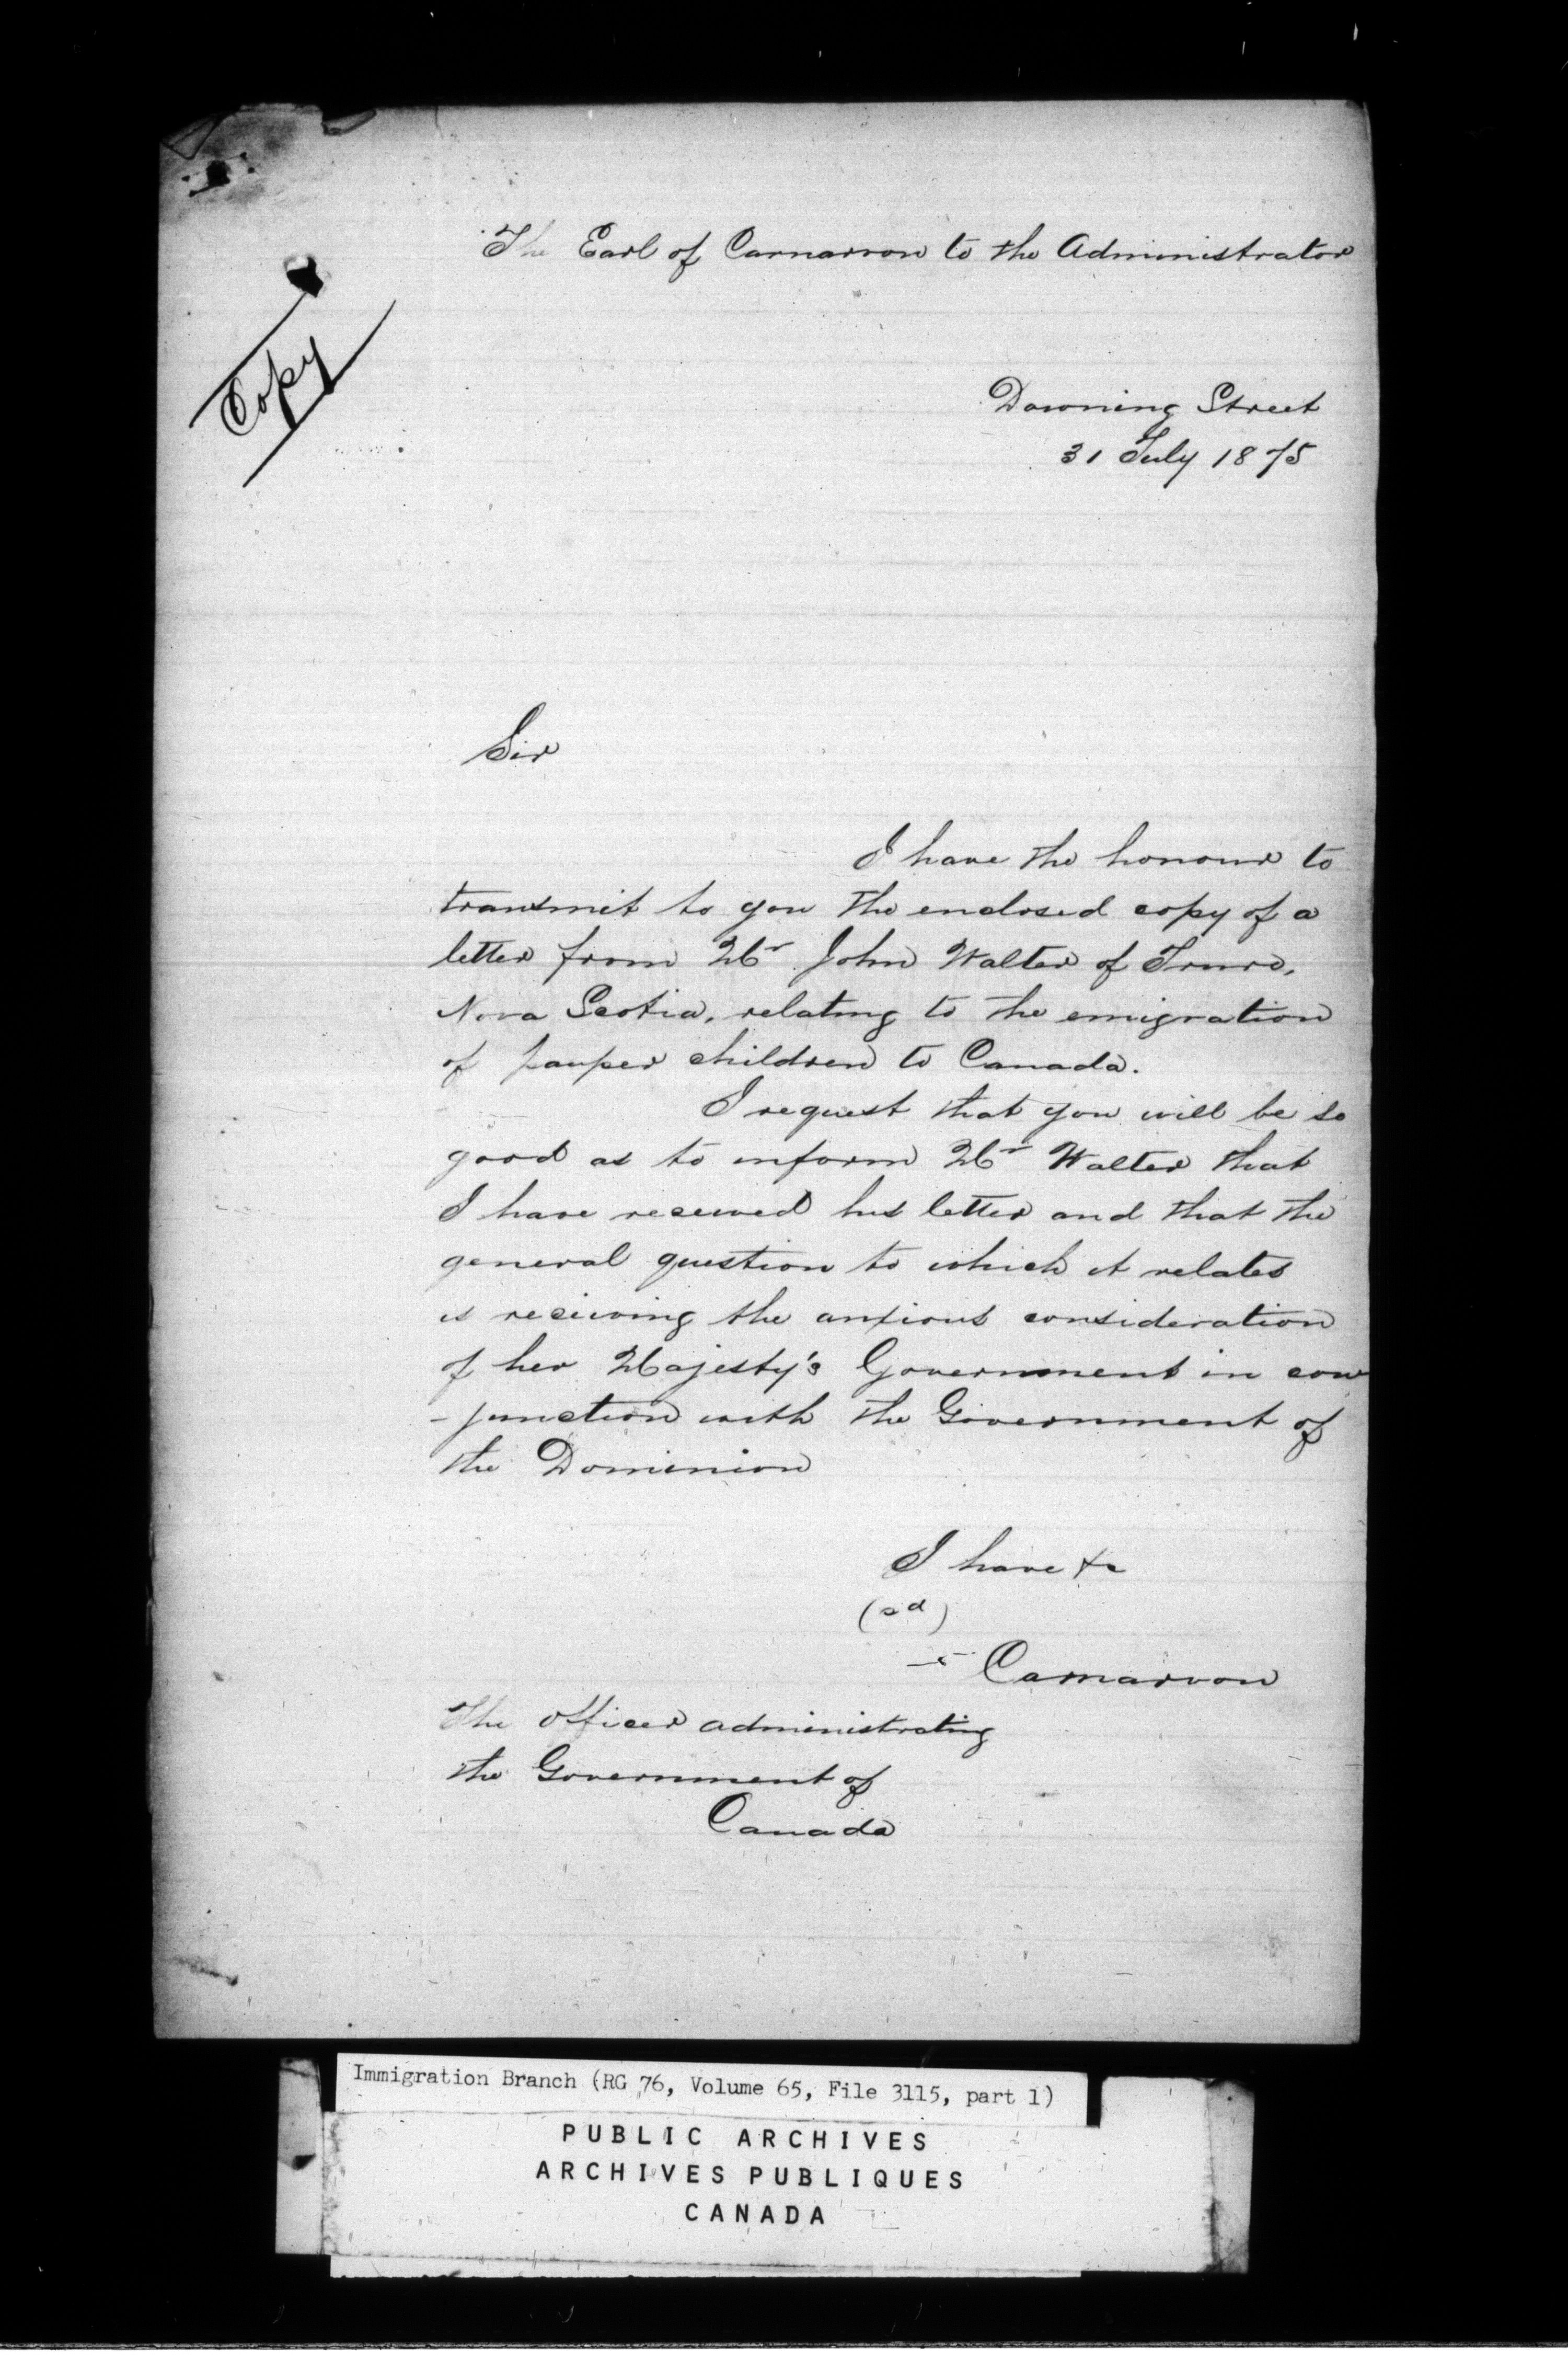 The Earl of Carnarvon to the Administrator
Copy
Downing Street
31 July 1875
Sir
I have the honour to
transmit to you the enclosed copy of a
letter from Mr John Walter of Truro,
Nova Scotia, relating to the emigration
of pauper children to Canada.
I request that you will be so
good as to inform Mr Walter that
I have received his letter and that the
general question to which it relates
is receiving the anxious consideration
of her Majesty's Government in con
-junction with the Government of
the Dominion
I have &c
(sd)
Carnarvon
The Officer administrating
the Government of
Canada
Immigration Branch (RG 76, Volume 65, File 3115, part 1)
PUBLIC ARCHIVES
ARCHIVES PUBLIQUES
CANADA